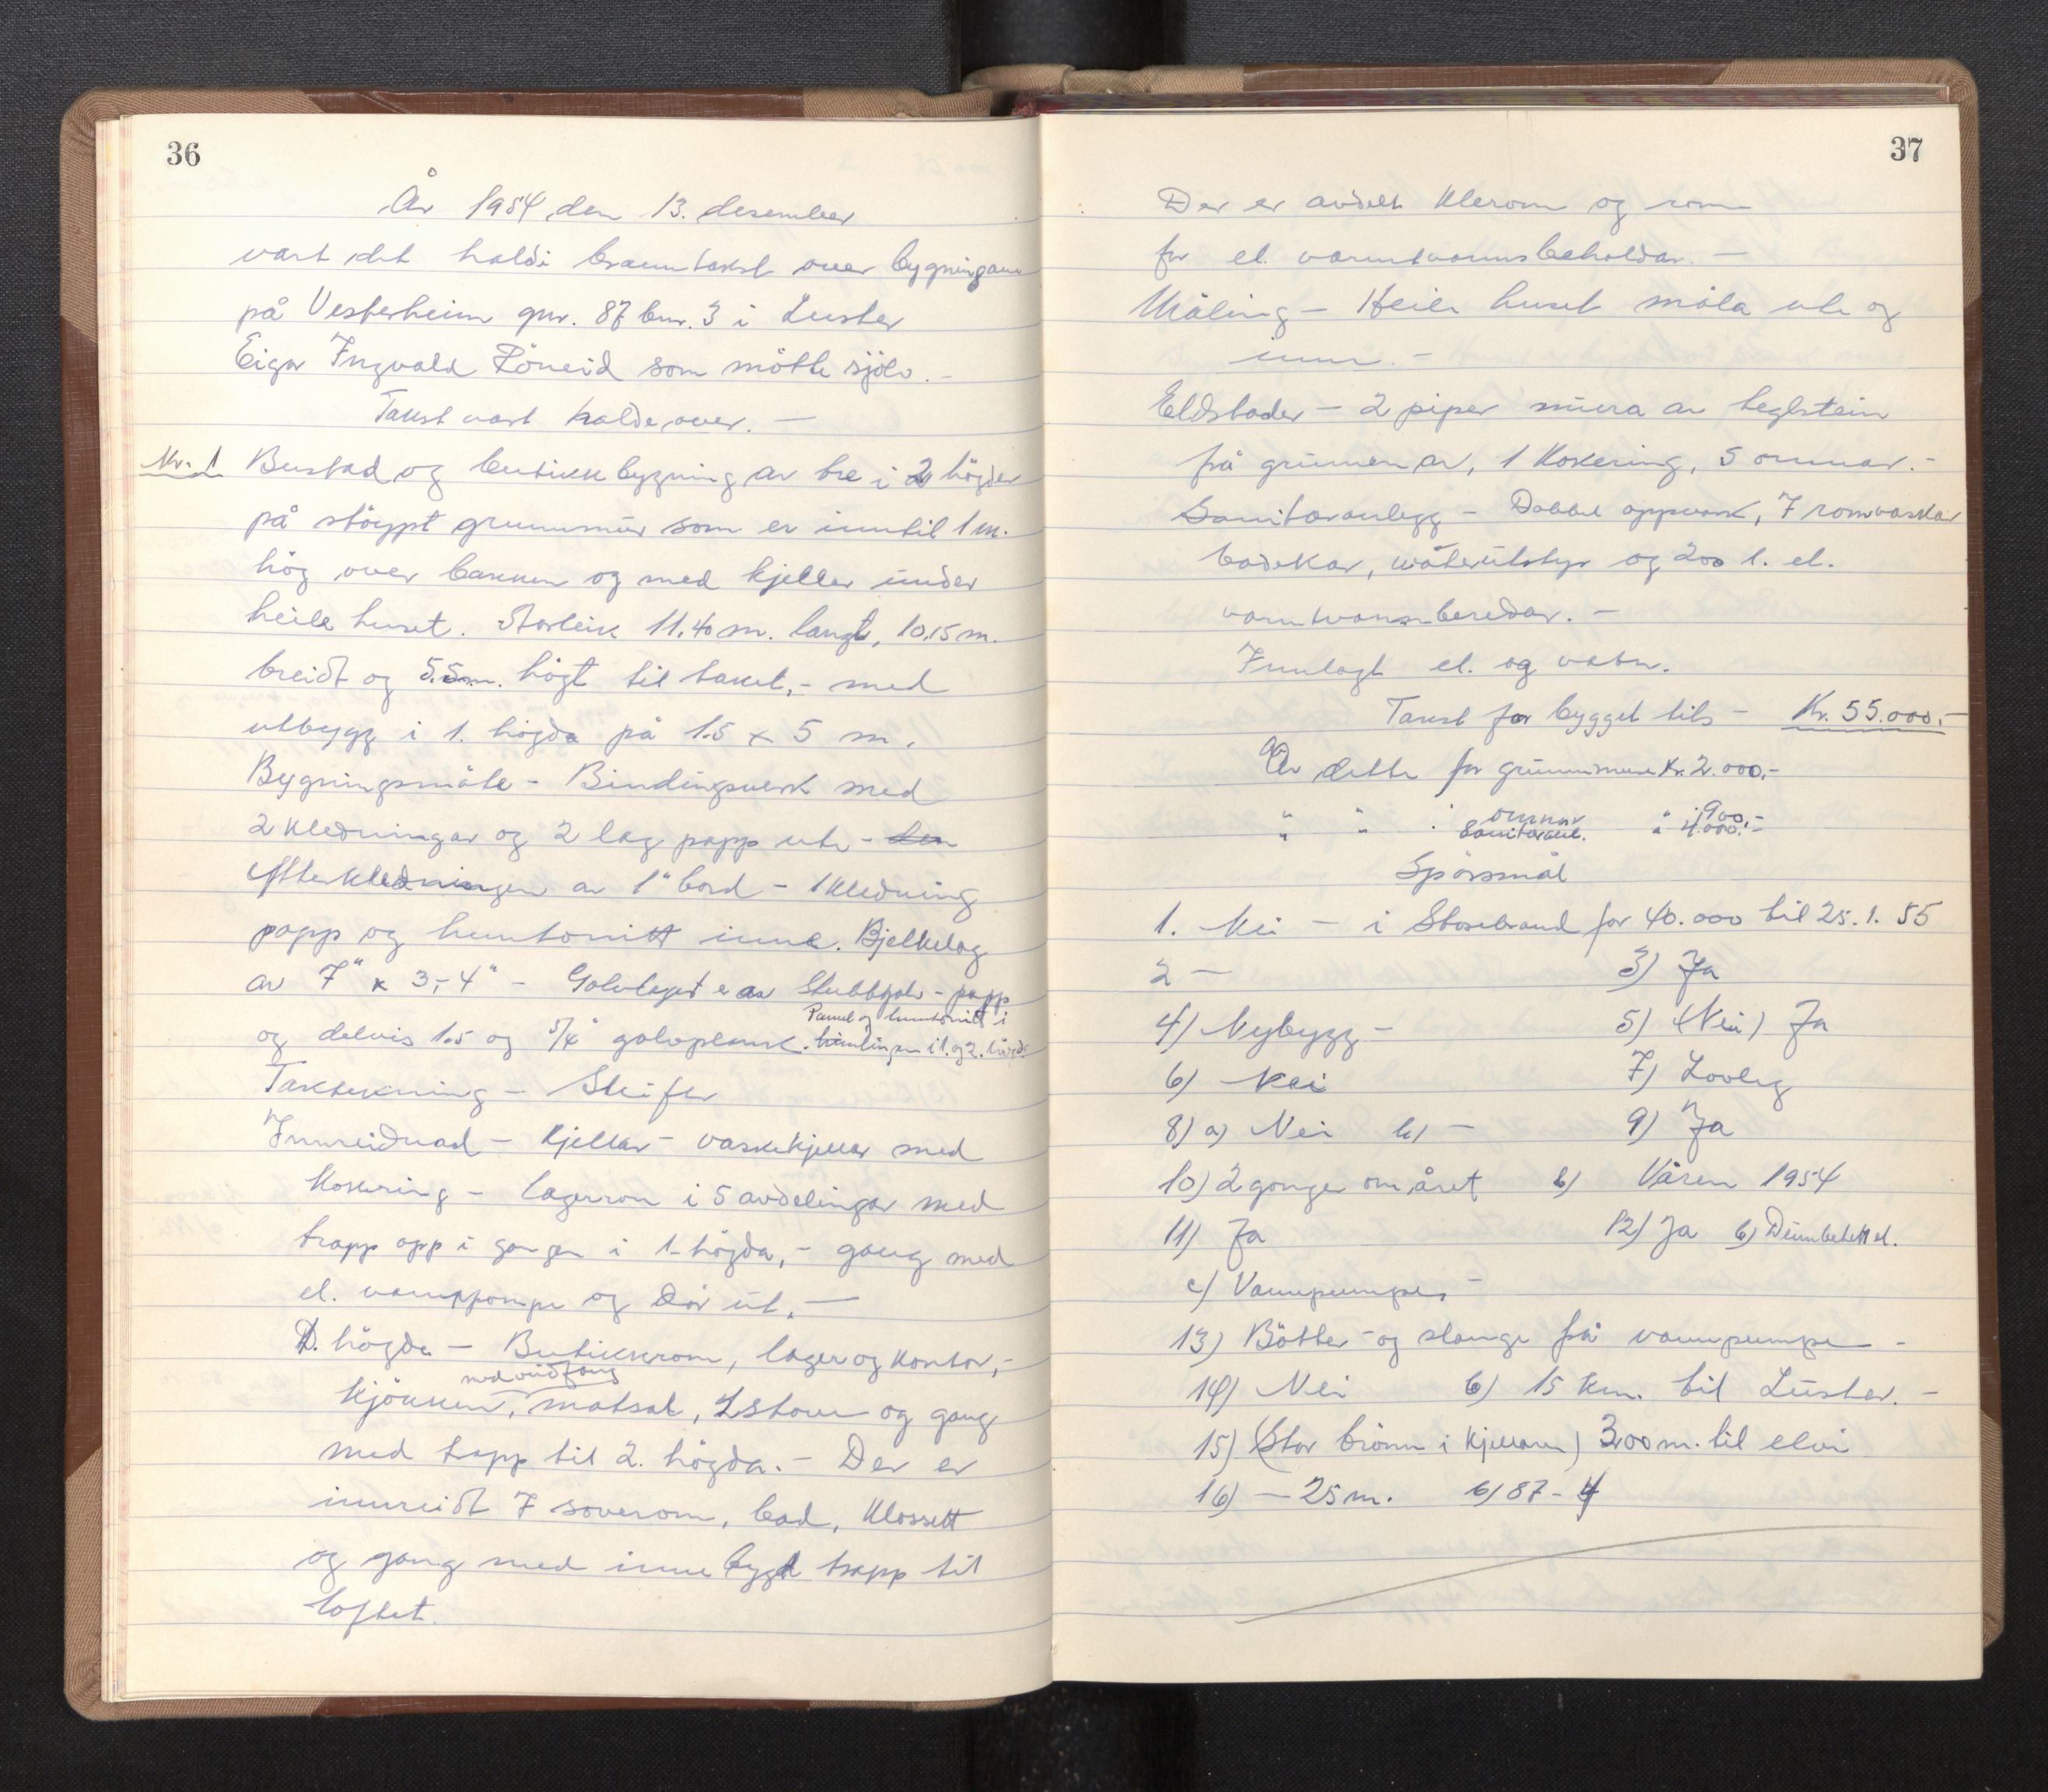 36
År 1954, den 13. desember
vart det haldi branntakst over bygningane
på Vesterheim gnr. 87 bnr. 3 i Luster
Eigar Ingvald Röneid som mötte sjölv.-
Takst vart halde over. -
Nr. 1 Bustad og butikkbygning av tre i 2 högder
på stöypt grunnmúr som er inntil 1 m.
hög over bakken og med kjeller únder
heile huset. Storleik 11,40 m. langt, 10,15 m.
breidt og 5.5 m. högt til taket,- med
utbygg i 1. högda på 1.5 x 5 m.
Bygningsmåte - Bindingsverk med
2 kledningar og 2 lag papp ute -
Ytterkledningen av 1" bord - 1 kledning
papp og huntonitt inne. Bjelkelag
av 7" x 3,-4" - Golvlaget er av Stubbgolv - papp
Panel og huntonitt i
og delvis 1.5 og 5/4" golvplank. himlingen i 1. og 2. högda
Taktekning - Skifer
Innreidnad - Kjellar - vaskekjellar med
kokering - lagerrom i 5 avdelingar med
trapp opp i gangen i 1. högda, - gang med
el. vannpompe og dör út. -
1. högda - Butikkrom, lager og kontor,-
med vidfang
kjökken, matsal, 2 stover og gang
med trapp til 2. högda. - Der er
innreidt 7 soverom, bad, klossett
og gang med innebygd trapp til
loftet.
37
Der er avdelt klerom og rom
for el. varmtvannsbeholdar. -
Måling - Heile huset måla ute og
inne. -
Eldstader - 2 piper múra av teglstein
frå grunnen av, 1 kokering, 5 omnar. -
Sanitæranlegg - Dobbel oppvask, 7 romvaskar
badekar, wåterútstyr og 200 l. el.
varmtvannsberedar. -
Innlagt el. og vatn.
Takst for bygget tils - Kr. 55.000.-
Av dette for grúnnmure Kr. 2.000,-
" " " omnar " 1.900,-
" " Sanitæranl. " 4.000.-
Spörsmål
1. Nei - i Storebrand for 40.000 til 25.1.55
2 - 3) Ja
4) Nybygg - 5) (Nei) Ja
6) Nei 7) Lovleg
8) a) Nei b) - 9) Ja
10) 2 gonger om året b) Våren 1954
11) Ja 12) Ja b) el.
c) Vannpumpe, -
13) Bötter og slange frå vannpumpe -
14) Nei b) 15 km. til Lúster. -
15) (Stor brönn i kjellaren) 300 m. til elvi
16) - 25 m. b) 87 - 4